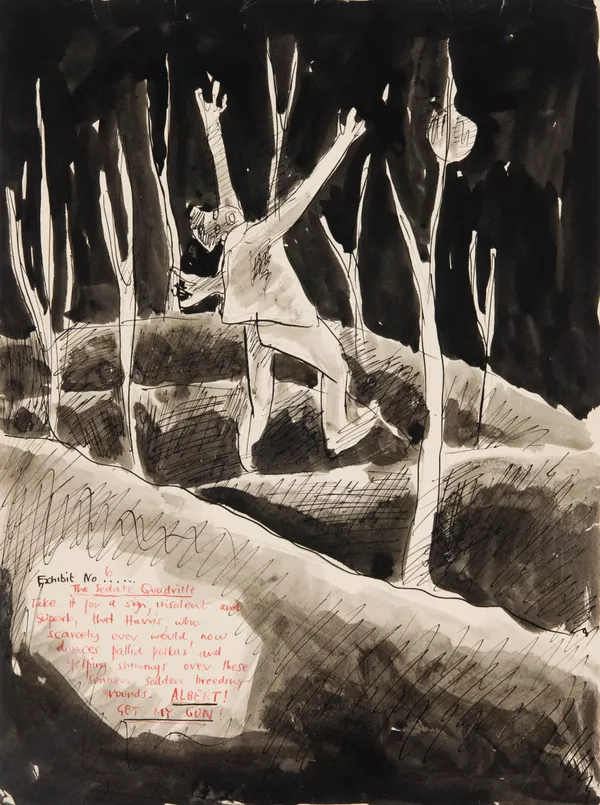 Exhibit No 6......
The Sedate Quadville
Take it for a sign, insolent and
superb, that Harris, who
scarcely ever would, now
dances pallid polkas! and
yelping shimmys over these
sunken sodden breeding
grounds. ALBERT!
GET MY GUN!